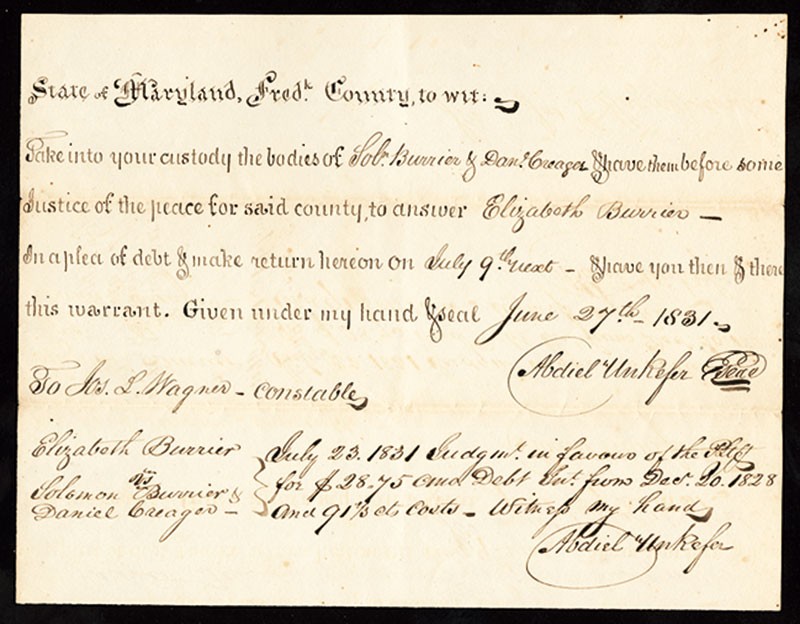 State of Maryland, Fredk County, to wit:
Take into your custody the bodies of Solo. Burrier & Danl. Creager & have them before some
Justice of the peace for said county, to answer Elizabeth Burrier —
In a plea of debt & make return hereon on July 9th next - & have you then & there
this warrant. Given under my hand & seal June 27th - 1831.
Abdiel Unkefer Seal
To Jos. L. Wagner - Constable
Elizabeth Burrier
vs
Solomon Burrier &
Daniel Creager -
July 23. 1831 Judgmt. in favour of the Pltff
for $28.75 cma. Debt Int. from Decr. 20. 1828
And 91⅓ cts costs - Witness my hand
Abdiel Unkefer